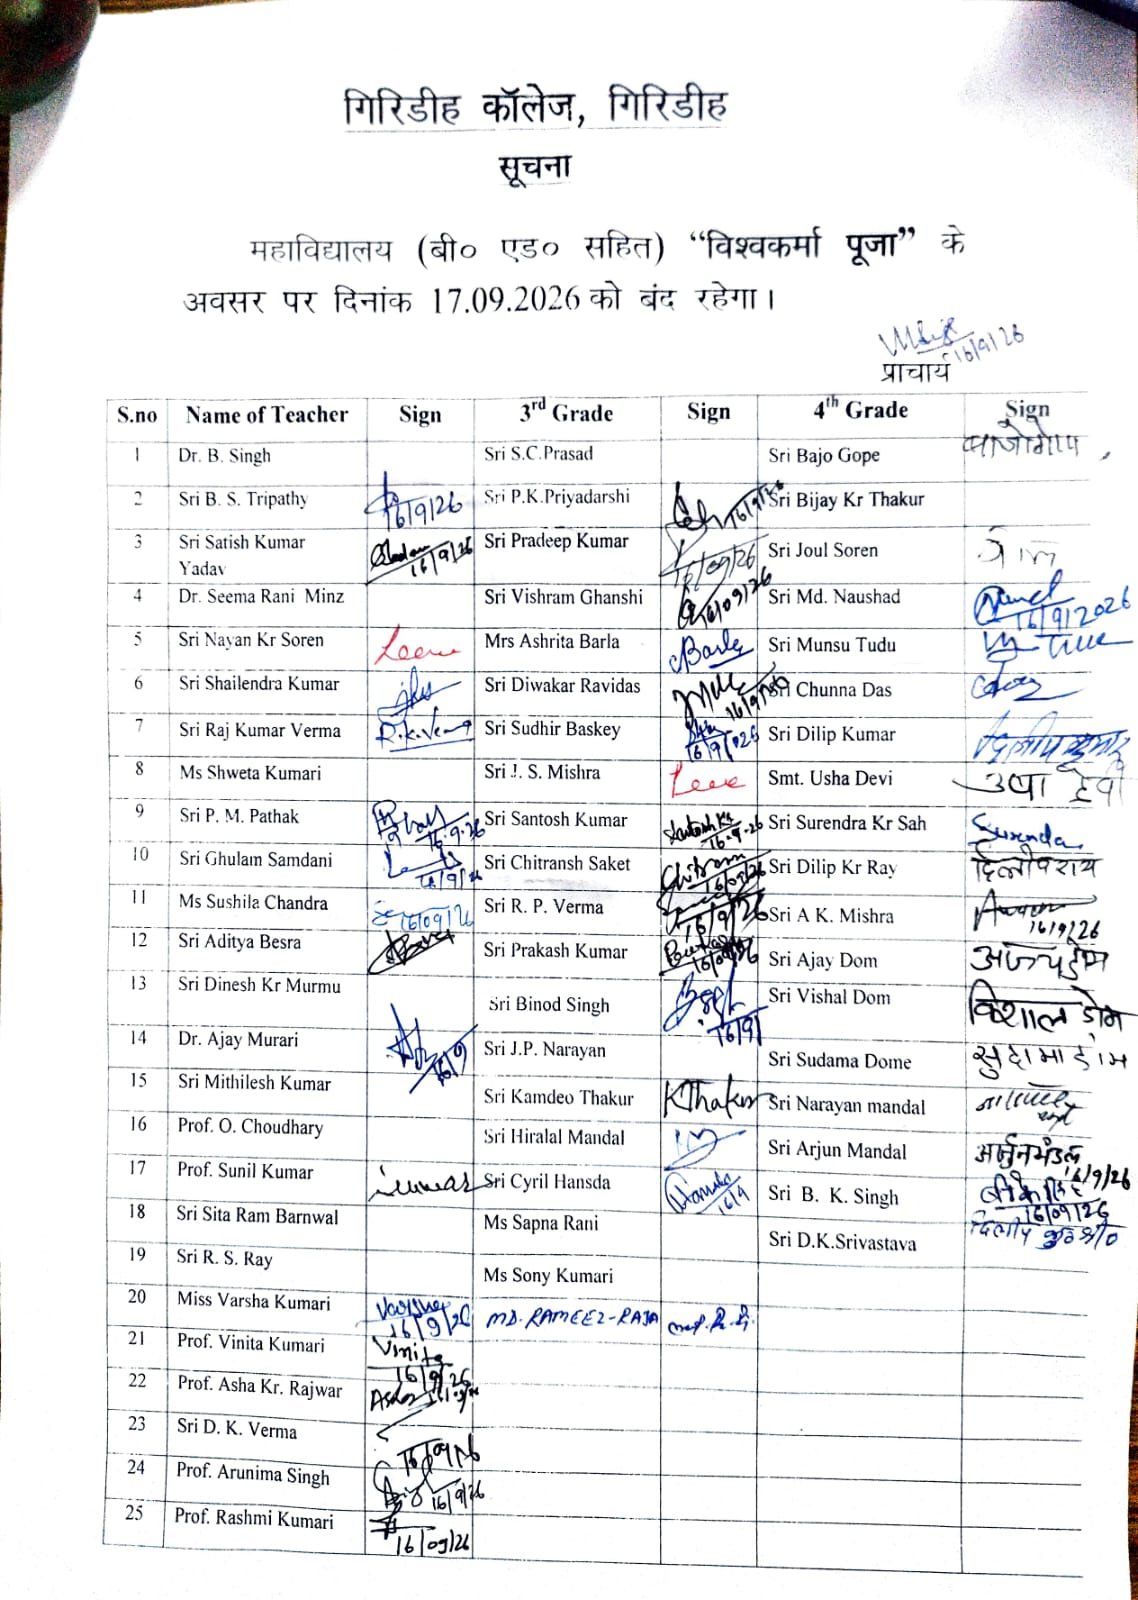 गिरिडीह कॉलेज, गिरिडीह
सूचना
महाविद्यालय (बी० एड० सहित) “विश्वकर्मा पूजा” के
अवसर पर दिनांक 17.09.2026 को बंद रहेगा।
16/9/26
प्राचार्य
S.no Name of Teacher Sign 3rd Grade Sign 4th Grade Sign
1 Dr. B. Singh Sri S.C.Prasad Sri Bajo Gope
2 Sri B. S. Tripathy 16/9/26 Sri P.K.Priyadarshi 16/9/26 Sri Bijay Kr Thakur
3 Sri Satish Kumar Yadav 16/9/26 Sri Pradeep Kumar 16/09/26 Sri Joul Soren
4 Dr. Seema Rani Minz Sri Vishram Ghanshi 16/09/26 Sri Md. Naushad 16/9/2026
5 Sri Nayan Kr Soren Leave Mrs Ashrita Barla Barla Sri Munsu Tudu
6 Sri Shailendra Kumar Sri Diwakar Ravidas 16/9/26 Sri Chunna Das
7 Sri Raj Kumar Verma R.K.Verma Sri Sudhir Baskey 16/9/026 Sri Dilip Kumar
8 Ms Shweta Kumari Sri J. S. Mishra Leave Smt. Usha Devi उषा देवी
9 Sri P. M. Pathak 16.9.26 Sri Santosh Kumar Santosh Kr 16.9.26 Sri Surendra Kr Sah Surenda
10 Sri Ghulam Samdani 16/9/26 Sri Chitransh Saket 16/09/26 Sri Dilip Kr Ray दिलीप राय
11 Ms Sushila Chandra 16/09/26 Sri R. P. Verma 16/9/26 Sri A K. Mishra 16/9/26
12 Sri Aditya Besra Sri Prakash Kumar 16/09/26 Sri Ajay Dom अजय डोम
13 Sri Dinesh Kr Murmu Sri Binod Singh 16/9/ Sri Vishal Dom विशाल डोम
14 Dr. Ajay Murari 16/9 Sri J.P. Narayan Sri Sudama Dome सुदामा डोम
15 Sri Mithilesh Kumar Sri Kamdeo Thakur KThakur Sri Narayan mandal
16 Prof. O. Choudhary Sri Hiralal Mandal Sri Arjun Mandal अर्जुन मंडल 16/9/26
17 Prof. Sunil Kumar Sri Cyril Hansda 16/9 Sri B. K. Singh 16/09/26
18 Sri Sita Ram Barnwal Ms Sapna Rani Sri D.K.Srivastava दिलीप
19 Sri R. S. Ray Ms Sony Kumari
20 Miss Varsha Kumari Varsha 16/9/26 MD. RAMEEZ-RAJA
21 Prof. Vinita Kumari Vinita 16/9/26
22 Prof. Asha Kr. Rajwar Asha
23 Sri D. K. Verma 16/09/26
24 Prof. Arunima Singh 16/9/26
25 Prof. Rashmi Kumari 16/09/26